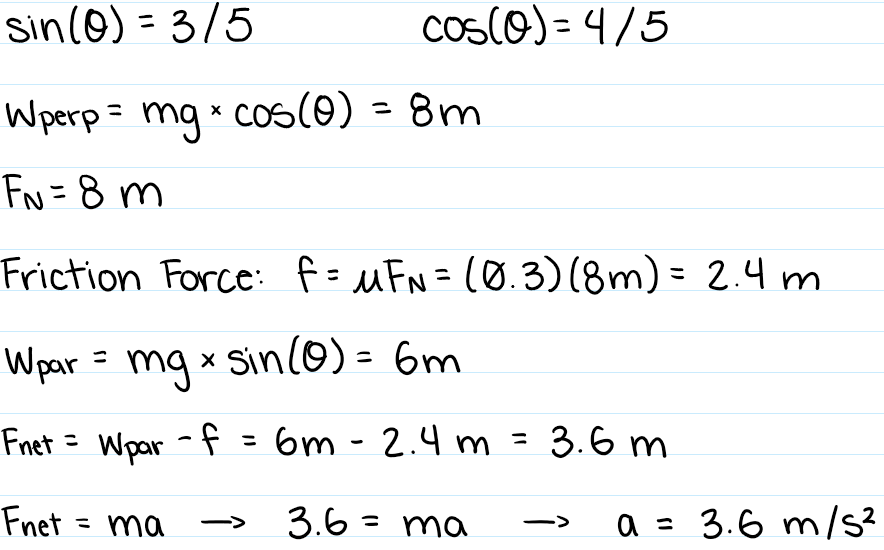 sin(θ) = 3/5 cos(θ) = 4/5
Wperp = mg × cos(θ) = 8m
FN = 8 m
Friction Force: f = μFN = (0.3)(8m) = 2.4 m
Wpar = mg × sin(θ) = 6m
Fnet = Wpar - f = 6m - 2.4 m = 3.6 m
Fnet = ma → 3.6 = ma → a = 3.6 m/s²